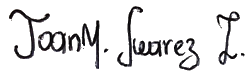 Joan M. Suarez L.